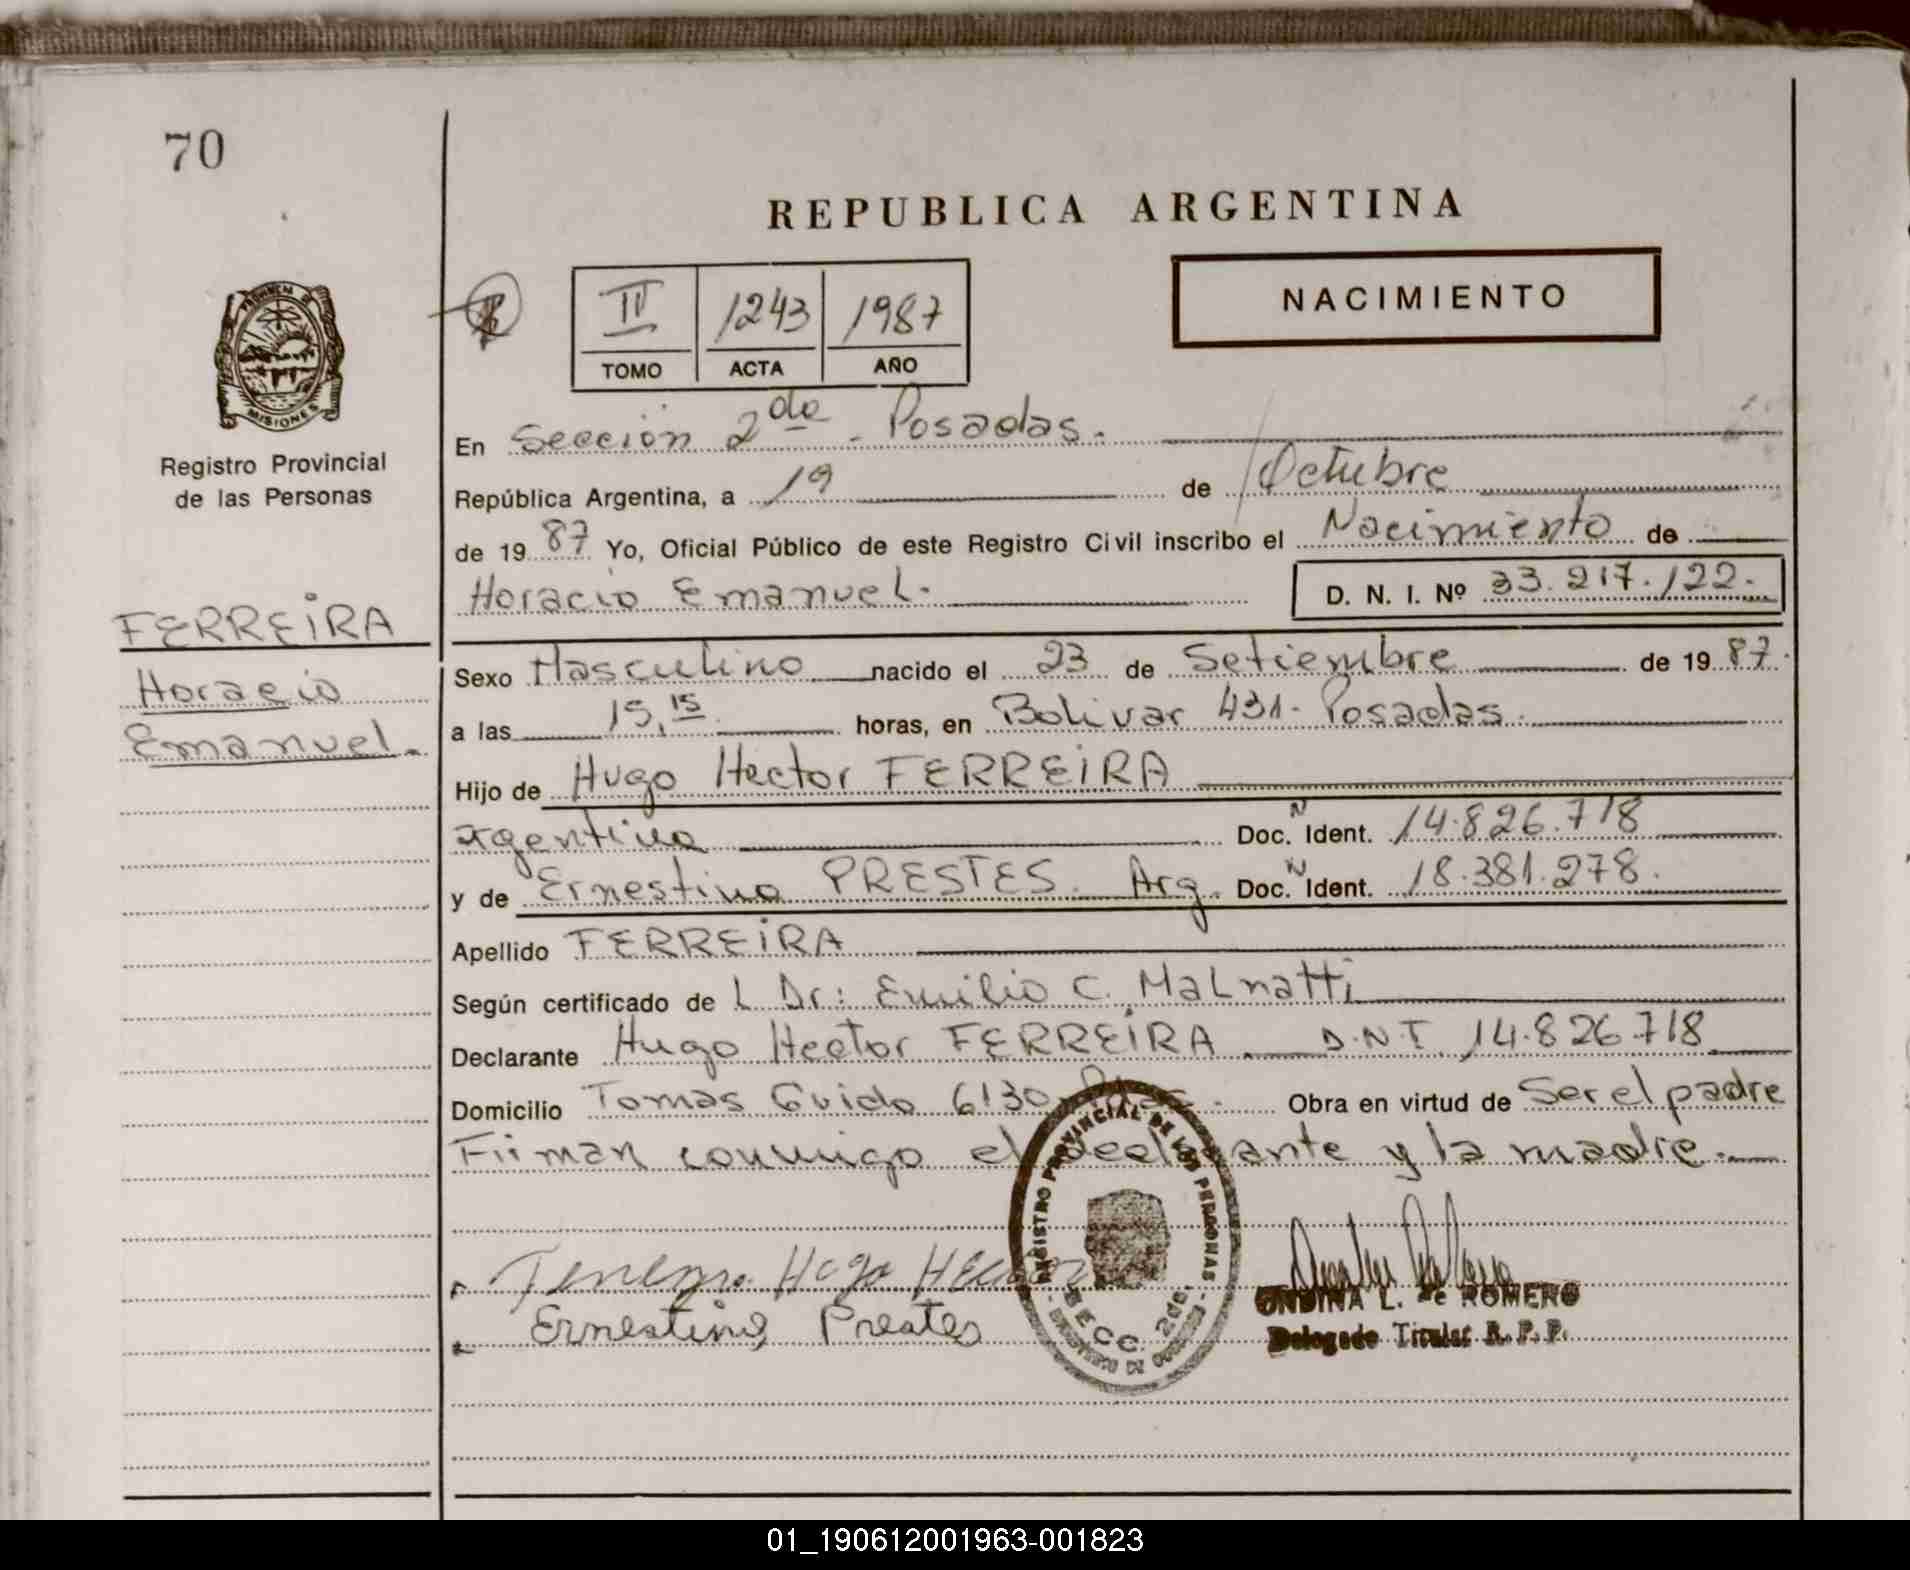 70
REPUBLICA ARGENTINA
NACIMIENTO
IV 1243 1987
TOMO ACTA AÑO
PROVINCIA DE MISIONES
Registro Provincial
de las Personas
FERREIRA
Horacio
Emanuel.
En Sección 2da - Posadas.
República Argentina, a 19 de Octubre
de 1987 Yo, Oficial Público de este Registro Civil inscribo el Nacimiento de
Horacio Emanuel. D. N. I. Nº 33.217.122.
Sexo Masculino nacido el 23 de Setiembre de 1987.
a las 15,15 horas, en Bolivar 431- Posadas.
Hijo de Hugo Hector FERREIRA
argentino Doc. N Ident. 14.826.718
y de Ernestina PRESTES. Arg. Doc. N Ident. 18.381.278.
Apellido FERREIRA
Según certificado de L Dr: Emilio C. Malnatti
Declarante Hugo Hector FERREIRA. D.N.I. 14.826.718
Domicilio Tomas Guido 6130 Obra en virtud de Ser el padre
Firman conmigo el declarante y la madre.
Hugo Hector
Ernestina Prestes
REGISTRO PROVINCIAL DE LAS PERSONAS
SECC. 2da
ONDINA L. de ROMERO
Delegado Titular R. P. P.
01_190612001963-001823